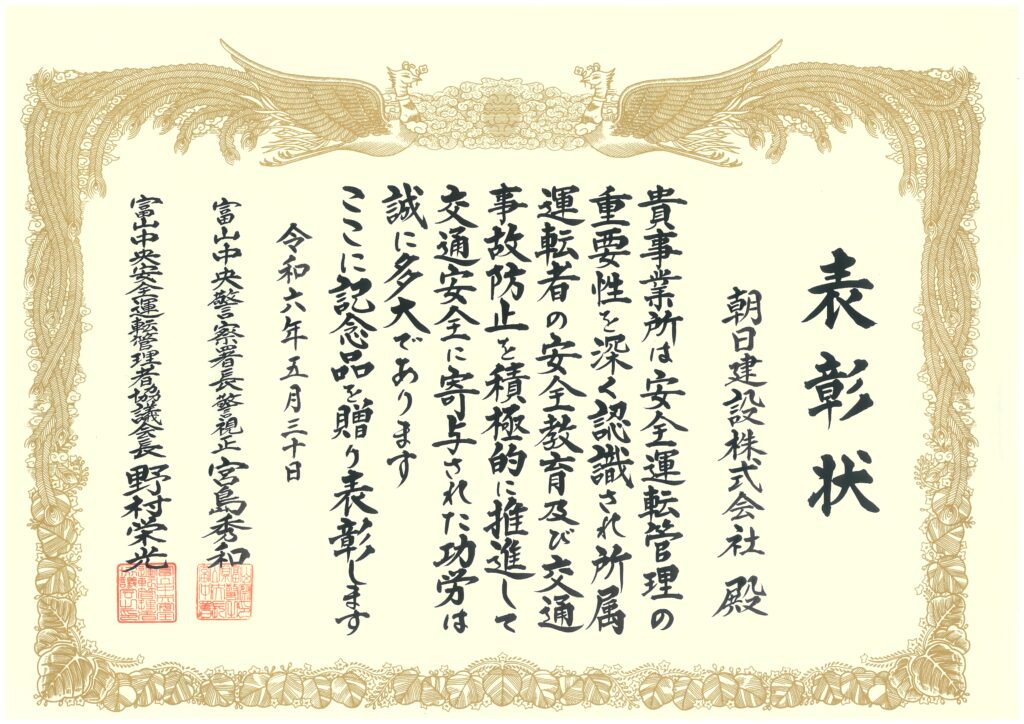 表彰状
朝日建設株式会社 殿
貴事業所は安全運転管理の
重要性を深く認識され所属
運転者の安全教育及び交通
事故防止を積極的に推進して
交通安全に寄与された功労は
誠に多大であります
ここに記念品を贈り表彰します
令和六年五月三十日
富山中央警察署長警視正 宮島秀和
富山中央安全運転管理者協議会長 野村栄光